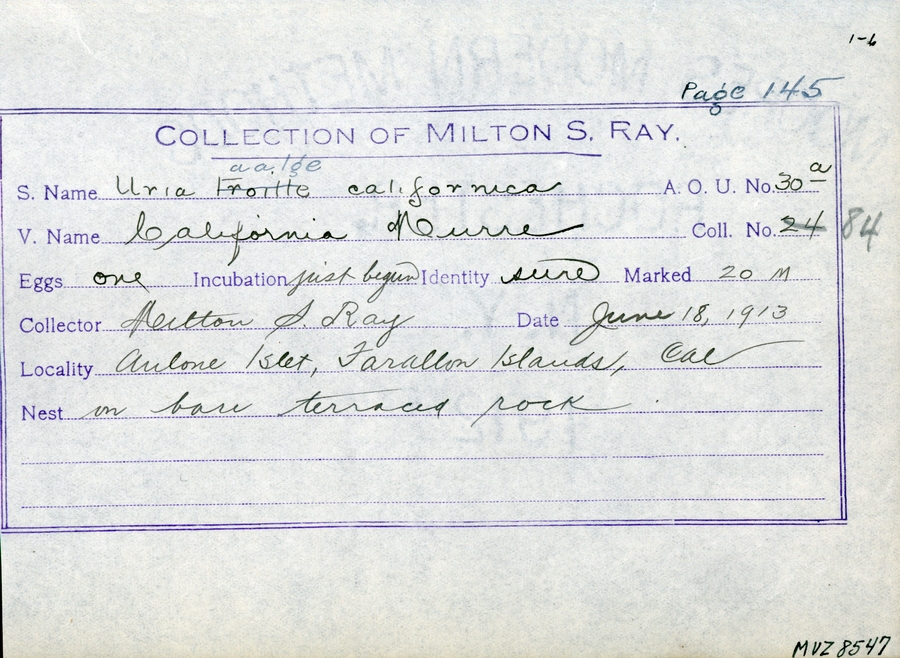 1-6
Page 145
COLLECTION OF MILTON S. RAY.
aalge
S. Name Uria Troille californica A. O. U. No. 30a
V. Name California Murre Coll. No. 24 84
Eggs one Incubation just begun Identity sure Marked 20 M
Collector Milton S. Ray Date June 18, 1913
Locality Aulone Islet, Farallon Islands, Cal
Nest on bare terraced rock.
MVZ 8547